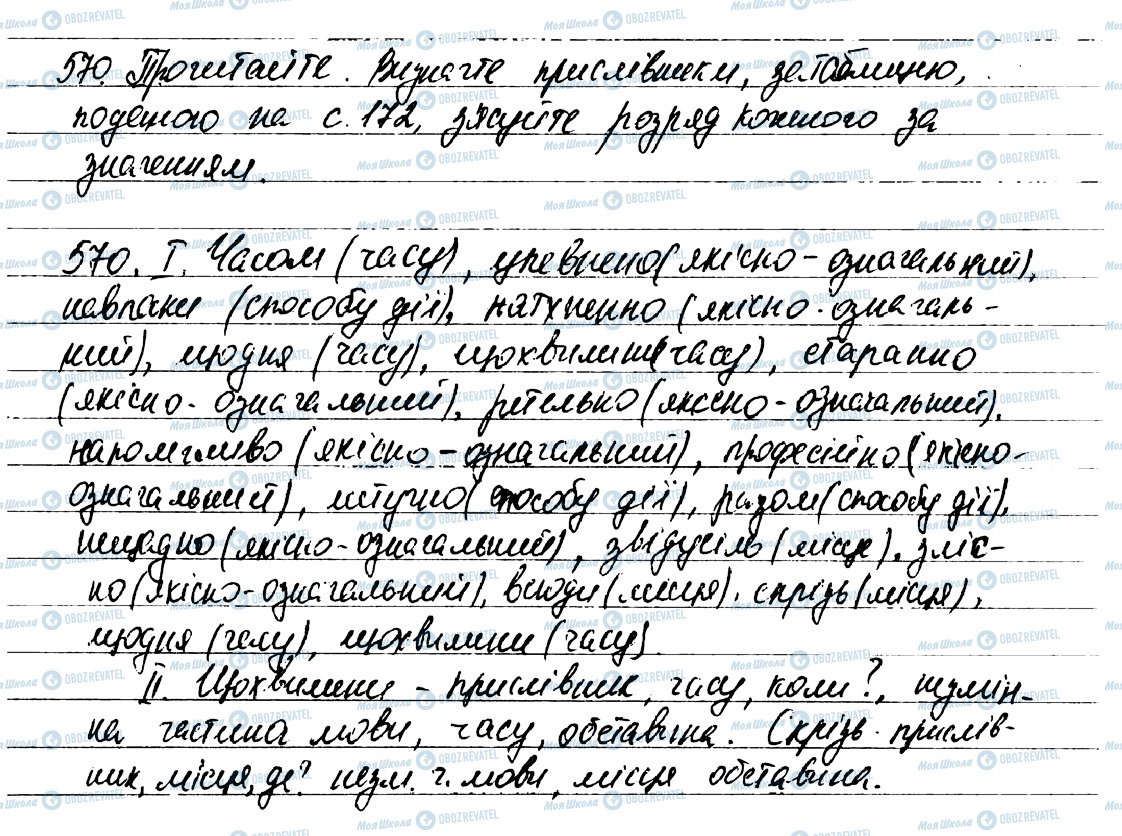 570. Прочитайте. Визначте прислівники, за таблицею,
поданою на с. 172, з'ясуйте розряд кожного за
значенням.
570. I. Часом (часу), упевнено (якісно-означальний),
навпаки (способу дії), натхненно (якісно-означаль-
ний), щодня (часу), щохвилини (часу), старанно
(якісно-означальний), ретельно (якісно-означальний),
наполегливо (якісно-означальний), професійно (якісно-
означальний), штучно (способу дії), разом (способу дії),
нещадно (якісно-означальний), звідусіль (місця), зліс-
но (якісно-означальний), всюди (місця), скрізь (місця),
щодня (часу), щохвилини (часу).
II. Щохвилини - прислівник, часу, коли?, незмін-
на частина мови, часу, обставина. Скрізь - прислів-
ник, місця, де? незм. ч. мови, місця обставина.